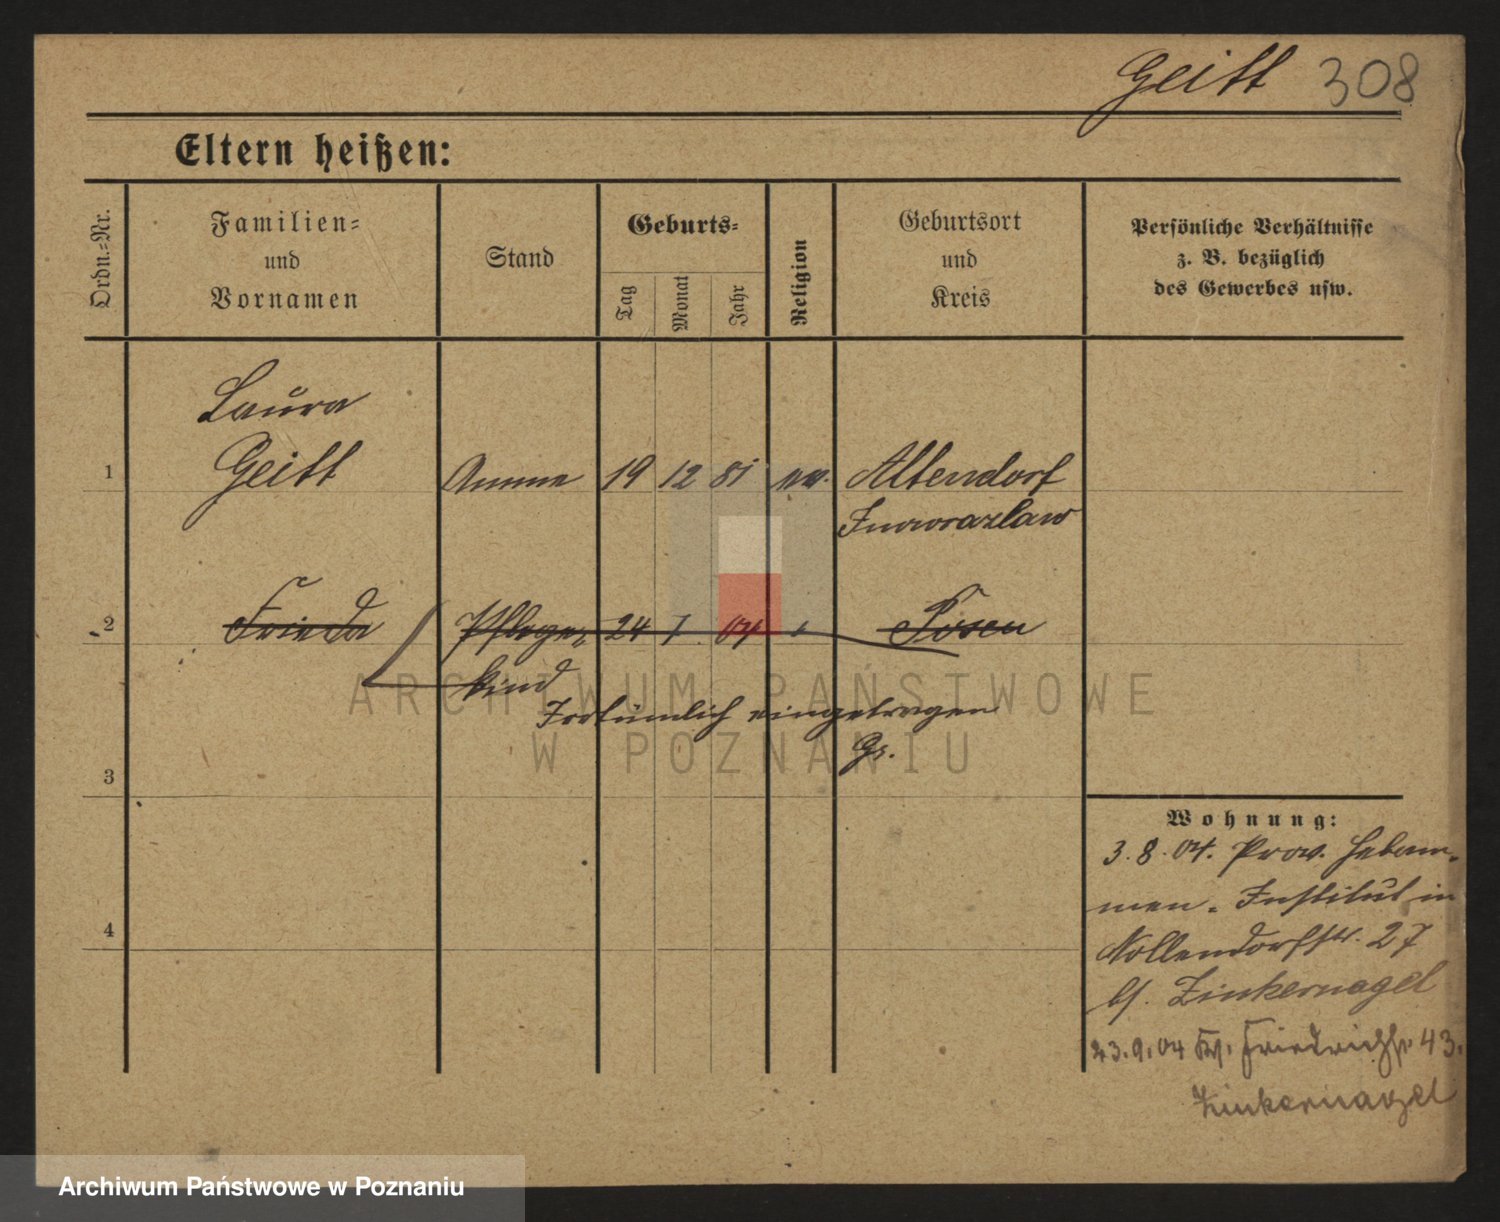 Geitt 308
Eltern heißen:
Ordn.-Nr.
Familien-
und
Vornamen
Stand
Geburts-
Tag
Monat
Jahr
Religion
Geburtsort
und
Kreis
Persönliche Verhältnisse
z. B. bezüglich
des Gewerbes usw.
Laura
1 Geitt Amme 19 12 81 ev. Altendorf
Inowrazlaw
2 Frieda Pflege- 24 7 04 " Posen
kind
Irrtümlich eingetragen
Gs.
3
4
Wohnung:
3. 8. 04. Prov. Hebam-
men-Institut in
Nollendorfstr. 27
bf. Zinkernagel
23.9.04 Friedrichstr. 43.
Zinkernagel
ARCHIWUM PAŃSTWOWE
W POZNANIU
Archiwum Państwowe w Poznaniu